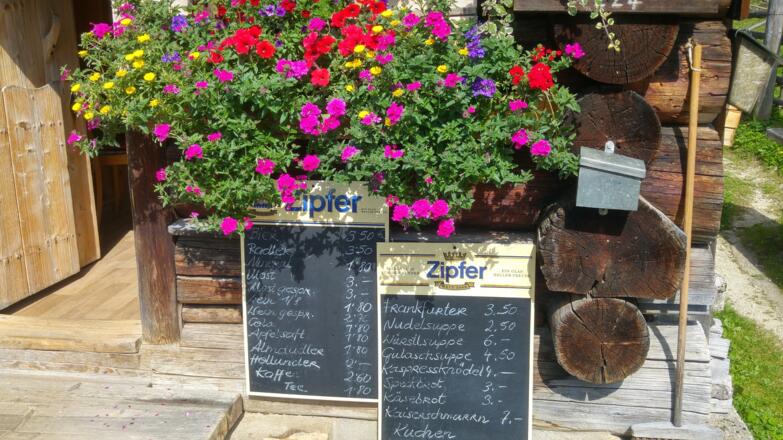 24
Zipfer
Bier 3.50
Radler 3.50
1.80
Most 3.-
Mostgespr. 3.-
Wein 1/8 1.80
Weingespr. 2.70
Cola 1.80
Apfelsaft 1.80
Almdudler 1.80
Hollunder 2.-
Kaffee 2.60
Tee 1.80
Zipfer
EIN GLAS
HELLER FREUDE
Frankfurter 3.50
Nudelsuppe 2.50
Würstlsuppe 6.-
Gulaschsuppe 4.50
Kaspressknödel 4.-
Speckbrot 3.-
Käsebrot 3.-
Kaiserschmarrn 7.-
Kuchen